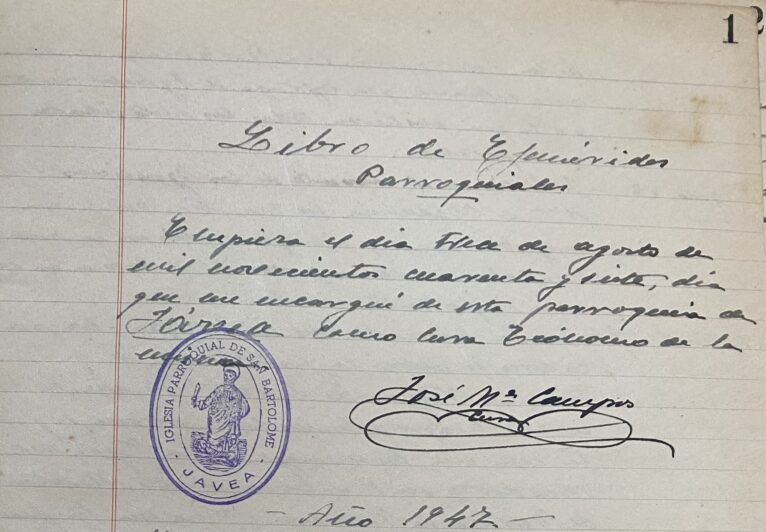 1
Libro de Efemérides
Parroquiales
Empieza el dia tres de agosto de
mil novecientos cuarenta y siete, dia
que me encargué de esta parroquia de
Jávea como Cura Ecónomo de la
misma
José Mª Campos
Cura
IGLESIA PARROQUIAL DE SAN BARTOLOME
- JAVEA -
- Año 1947 -